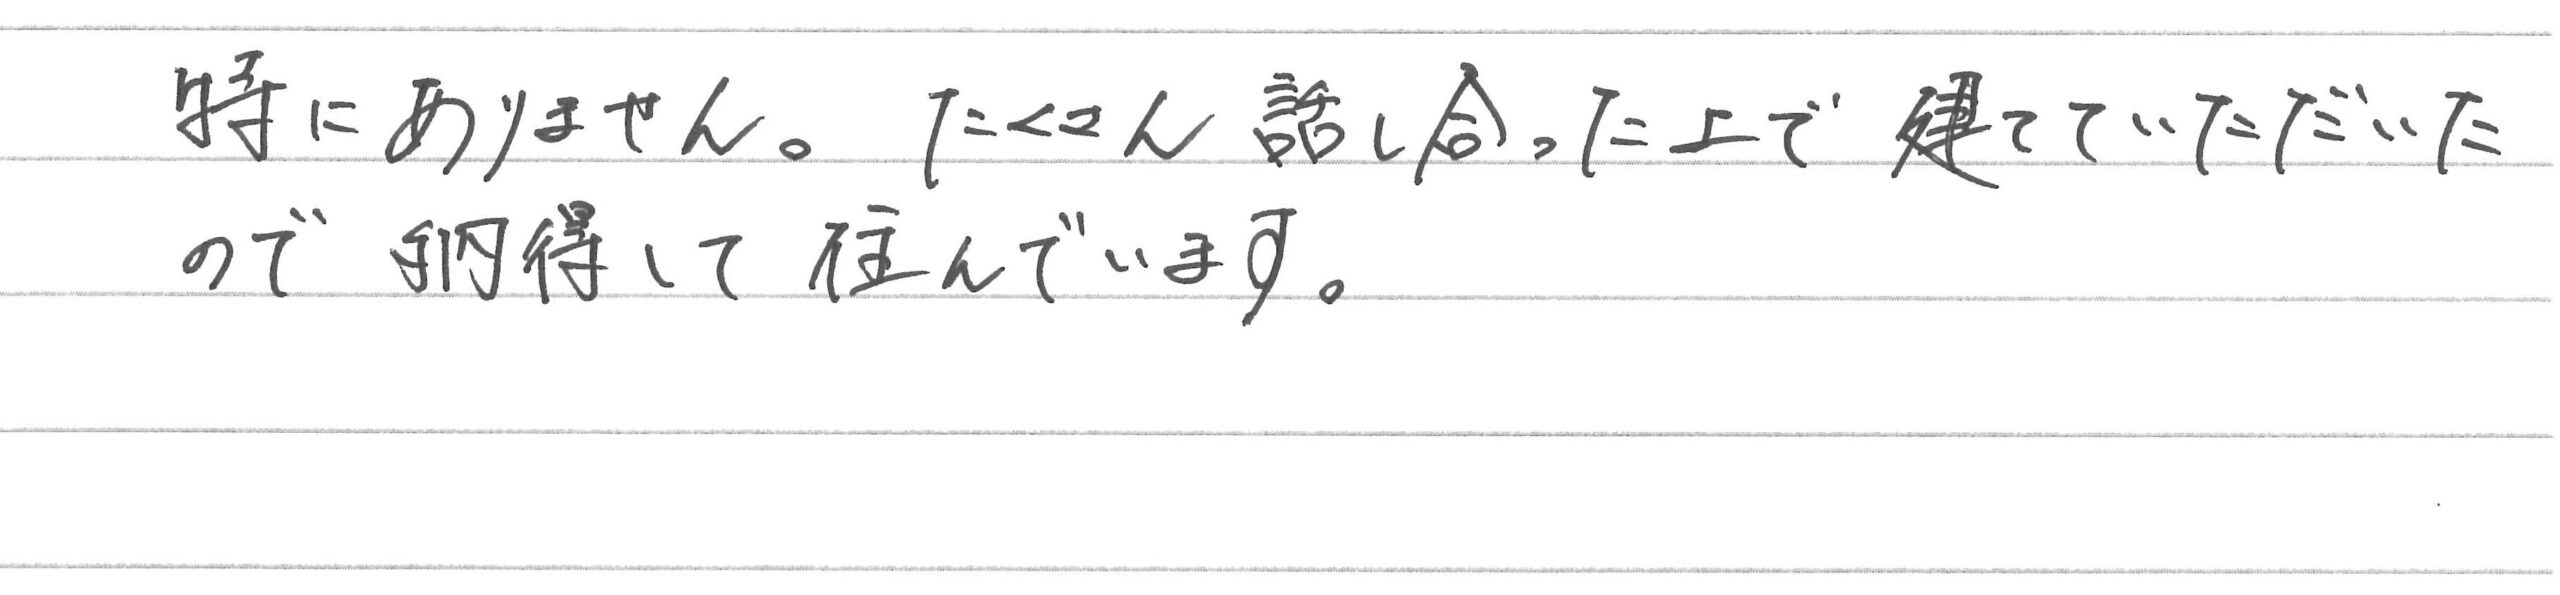 特にありません。たくさん話し合った上で建てていただいた
ので納得して住んでいます。